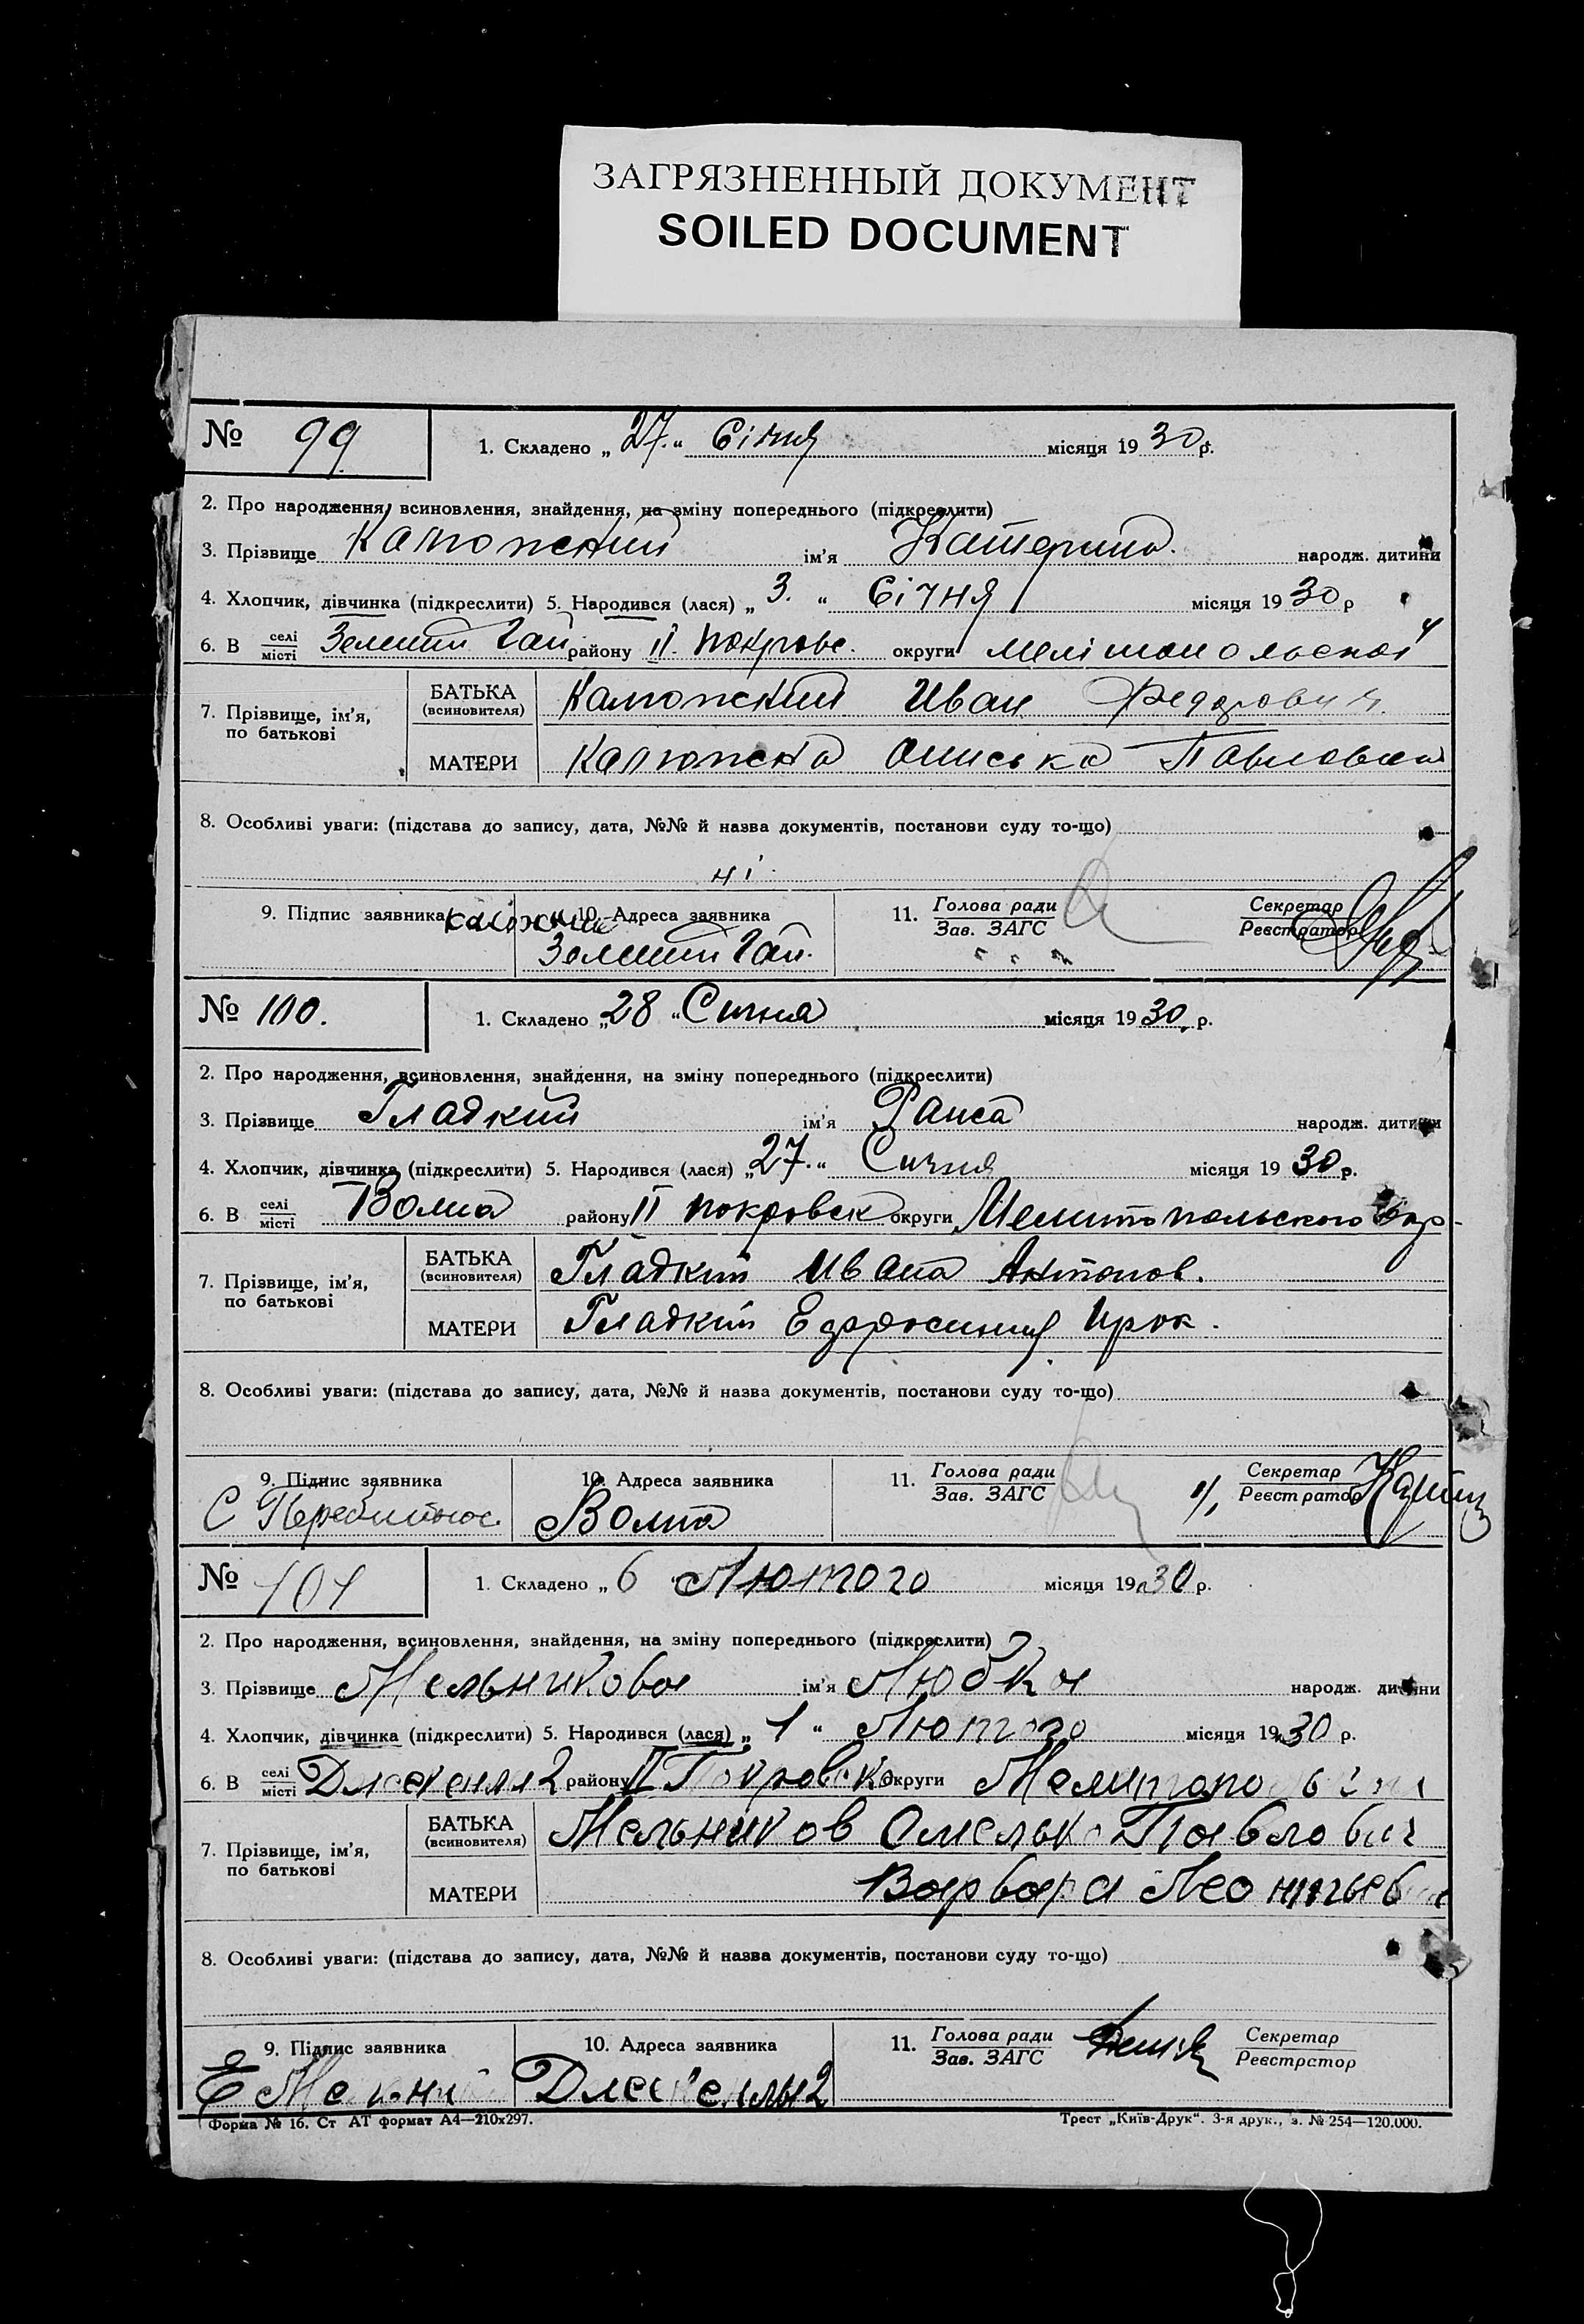 ЗАГРЯЗНЕННЫЙ ДОКУМЕНТ
SOILED DOCUMENT
№ 99 1. Складено „27.“ Січня місяця 1930 р.
2. Про народження, всиновлення, знайдення, на зміну попереднього (підкреслити)
3. Прізвище ім'я Катерина. народж. дитини
4. Хлопчик, дівчинка (підкреслити) 5. Народився (лася) „3.“ Січня місяця 1930 р
6. В селі/місті Зелений Гай району ІІ. Покровс. округи Мелітопольської
7. Прізвище, ім'я, по батькові БАТЬКА (всиновителя) Иван Федорович
МАТЕРИ Ониська Павловна
8. Особливі уваги: (підстава до запису, дата, №№ й назва документів, постанови суду то-що)
ні
9. Підпис заявника 10. Адреса заявника 11. Голова ради/Зав. ЗАГС Секретар/Реєстратор
Зелений Гай.
№ 100. 1. Складено „28“ Сичня місяця 1930 р.
2. Про народження, всиновлення, знайдення, на зміну попереднього (підкреслити)
3. Прізвище Гладкий ім'я Раиса народж. дитини
4. Хлопчик, дівчинка (підкреслити) 5. Народився (лася) „27.“ Сичня місяця 1930 р.
6. В селі/місті району ІІ Покровск округи Мелитопольского Окр-
7. Прізвище, ім'я, по батькові БАТЬКА (всиновителя) Гладкий Ивана Антонов.
МАТЕРИ Гладкий
8. Особливі уваги: (підстава до запису, дата, №№ й назва документів, постанови суду то-що)
9. Підпис заявника 10. Адреса заявника 11. Голова ради/Зав. ЗАГС Секретар/Реєстратор
№ 101 1. Складено „6“ Лютого місяця 1930 р.
2. Про народження, всиновлення, знайдення, на зміну попереднього (підкреслити)
3. Прізвище Мельникова ім'я Любка народж. дитини
4. Хлопчик, дівчинка (підкреслити) 5. Народився (лася) „1“ Лютого місяця 1930 р.
6. В селі/місті району ІІ Покровск округи
7. Прізвище, ім'я, по батькові БАТЬКА (всиновителя) Мельников Омелько Павлович
МАТЕРИ Варвара Леонтьевна
8. Особливі уваги: (підстава до запису, дата, №№ й назва документів, постанови суду то-що)
9. Підпис заявника 10. Адреса заявника 11. Голова ради/Зав. ЗАГС Секретар/Реєстратор
Форма № 16. Ст АТ формат А4—210х297. Трест „Київ-Друк“. 3-я друк., з. № 254—120.000.